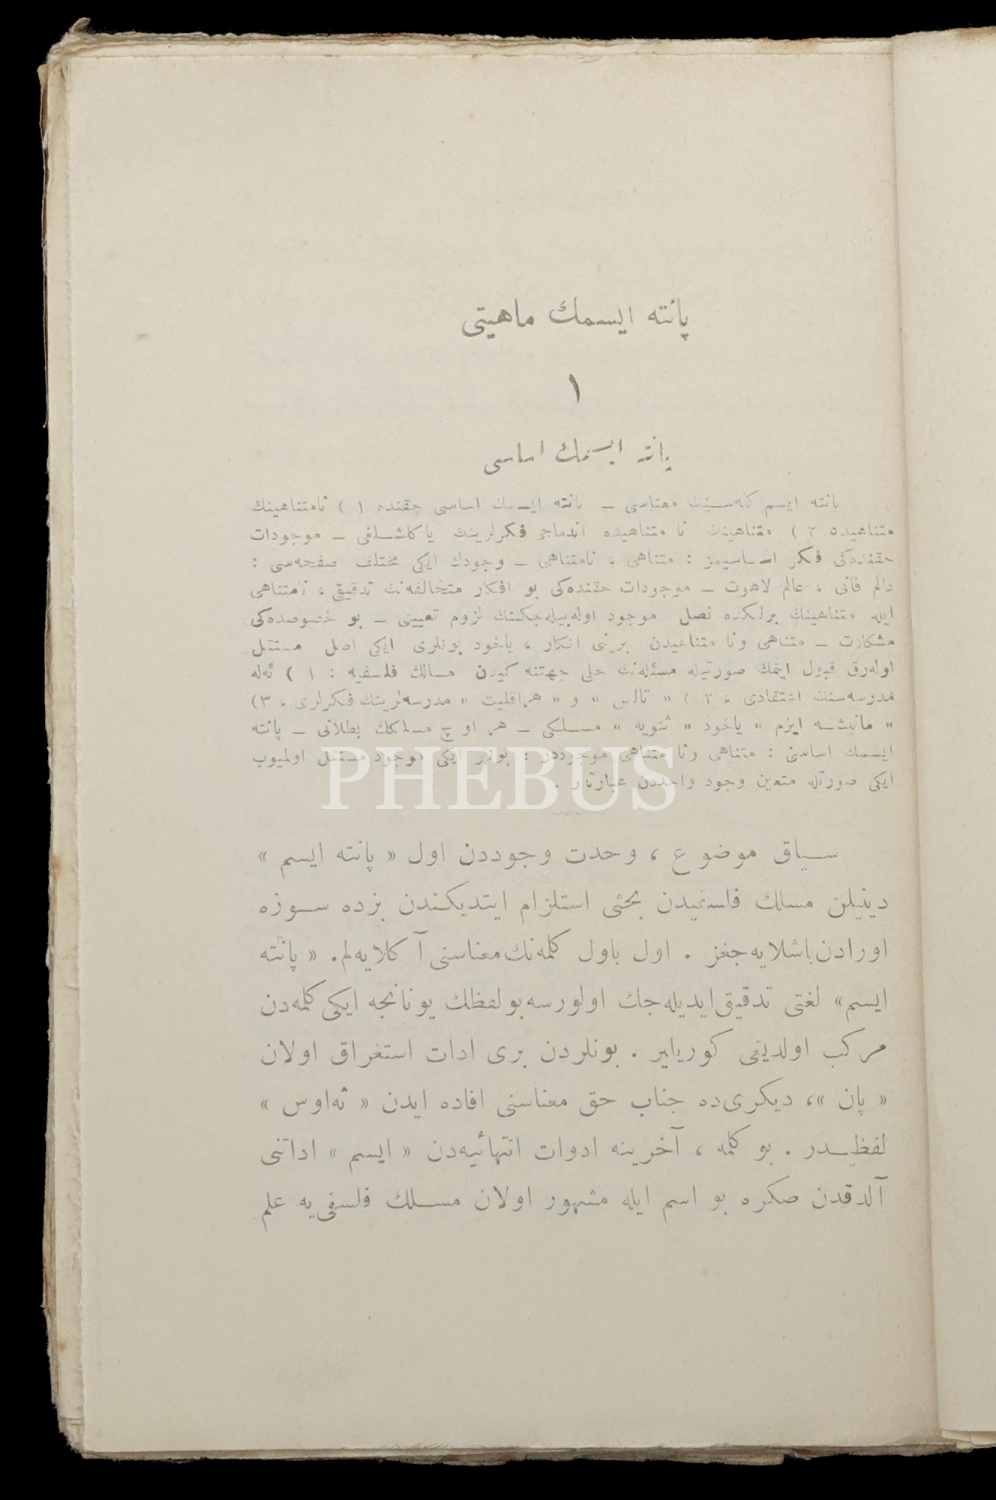 پانته ايسمك ماهيتى
١
پانته ايسمك اساسى
پانته ايسم كله‌سينك معناسى ــ پانته ايسمك اساسى حقنده ١ ) نامتناهينك
متناهيده ٢ ) متناهينك نا متناهيده اندماجى فكرلرينك ياكلشلغى ــ موجودات
حقنده‌كى فكر اساسيمز : متناهى ، نامتناهى ــ وجودك ايكى مختلف صفحه‌سى :
عالم فانى ، عالم لاهوت ــ موجودات حقنده‌كى بو افكار متخالفه‌نك تدقيقى ، نامتناهى
ايله متناهينك برلكده نصل موجود اوله‌بيله‌جكنك لزوم تعيينى ــ بو خصوصده‌كى
مشكلات ــ متناهى ونا متناهيدن برينى انكار ، ياخود بونلرى ايكى اصل مستقل
اوله‌رق قبول ايتمك صورتيله مسئله‌نك حلى جهتنه كيدن مسالك فلسفيه : ١ ) ئه‌له
مدرسه‌سنك اعتقادى ، ٢ ) « تالس » و « هراقليت » مدرسه‌لرينك فكرلرى ، ٣)
« مانيشه ايزم » ياخود « ثنويه » مسلكى ــ هر اوچ مسلكك بطلانى ــ پانته
ايسمك اساسى : متناهى ونا متناهى موجوددر : بونلر ايكى موجود مستقل اولميوب
ايكى صورتله متعين وجود واحددن عبارتدر .
PHEBUS
سياق موضوع ، وحدت وجوددن اول « پانته ايسم »
دينيلن مسلك فلسفيدن بحثى استلزام ايتديكندن بزده سوزه
اورادن باشلايه‌جغز . اول باول كلمه‌نك معناسنى آ كلايه‌لم. « پانته
ايسم» لغتى تدقيق ايديله‌جك اولورسه بولفظك يونانجه ايكى كلمه‌دن
مركب اولديغى كوريلير . بونلردن برى ادات استغراق اولان
« پان »، ديكرى‌ده جناب حق معناسنى افاده ايدن « ته‌اوس »
لفظيدر . بو كلمه ، آخرينه ادوات انتهائيه‌دن « ايسم » اداتنى
آلدقدن صكره بو اسم ايله مشهور اولان مسلك فلسفى‌يه علم